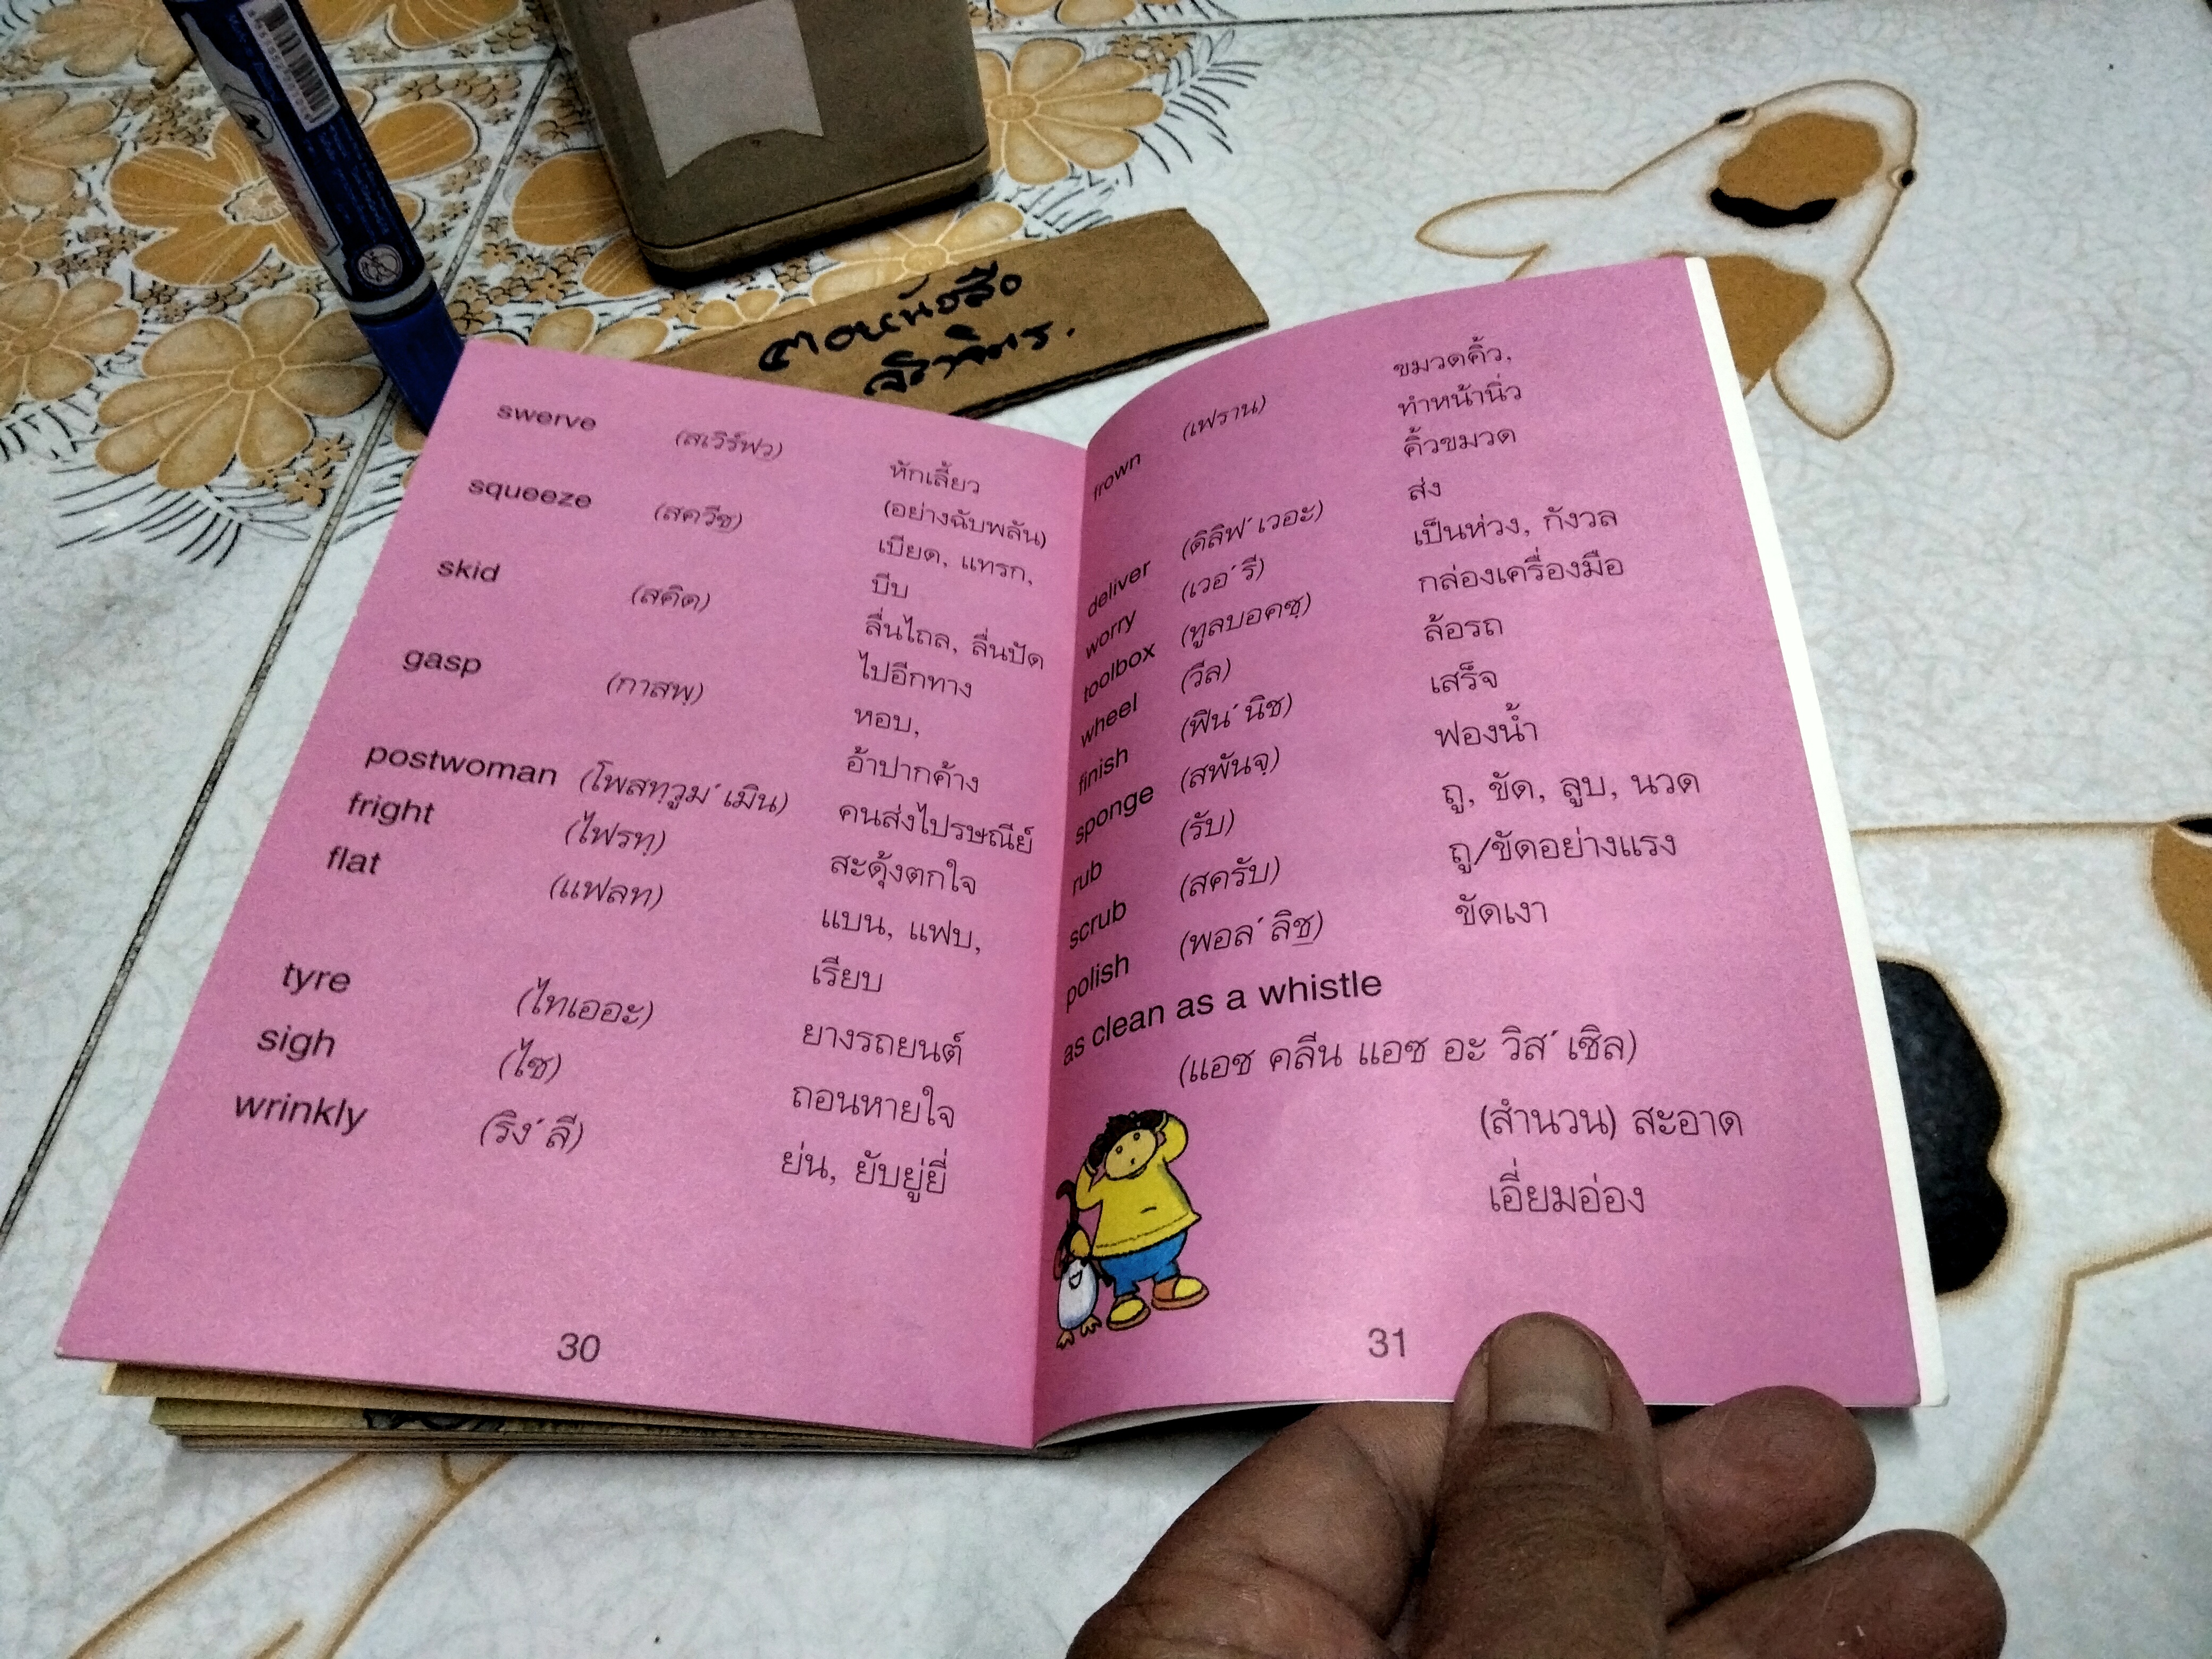 ฅอหนังสือ
swerve (สเวิร์ฟว) หักเลี้ยว
(อย่างฉับพลัน)
squeeze (สควีซ) เบียด, แทรก,
บีบ
skid (สคิด) ลื่นไถล, ลื่นปัด
ไปอีกทาง
gasp (กาสพฺ) หอบ,
อ้าปากค้าง
postwoman (โพสทฺวูม´เมิน) คนส่งไปรษณีย์
fright (ไฟรทฺ) สะดุ้งตกใจ
flat (แฟลท) แบน, แฟบ,
เรียบ
tyre (ไทเออะ) ยางรถยนต์
sigh (ไซ) ถอนหายใจ
wrinkly (ริง´ลี) ย่น, ยับยู่ยี่
30
frown (เฟราน) ขมวดคิ้ว,
ทำหน้านิ่ว
คิ้วขมวด
deliver (ดิลิฟ´เวอะ) ส่ง
worry (เวอ´รี) เป็นห่วง, กังวล
toolbox (ทูลบอคซฺ) กล่องเครื่องมือ
wheel (วีล) ล้อรถ
finish (ฟิน´นิช) เสร็จ
sponge (สพันจฺ) ฟองน้ำ
rub (รับ) ถู, ขัด, ลูบ, นวด
scrub (สครับ) ถู/ขัดอย่างแรง
polish (พอล´ลิช) ขัดเงา
as clean as a whistle
(แอซ คลีน แอซ อะ วิส´เซิล)
(สำนวน) สะอาด
เอี่ยมอ่อง
31